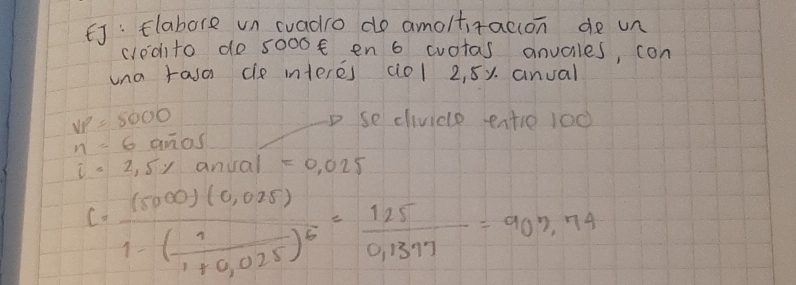 EJ: Elabore un cuadro de amortización de un
crédito de 5000 € en 6 cuotas anuales, con
una tasa de interés del 2,5% anual
VP = 5000
n = 6 años
→ se divide entre 100
i = 2,5% anual = 0,025
C = (5000)(0,025) / 1 - (1 / 1 + 0,025)^6 = 125 / 0,1377 = 907,74